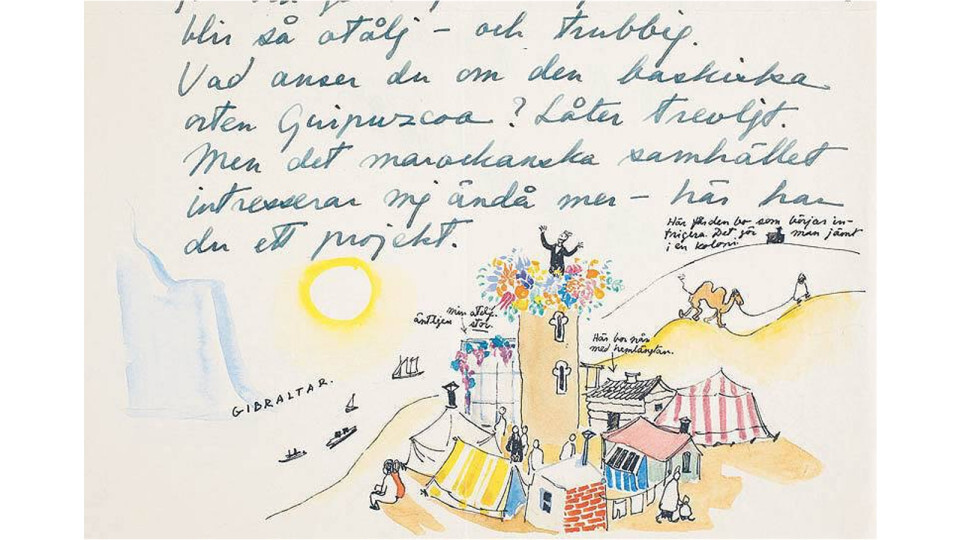 blir så otålig – och trubbig.
Vad anser du om den baskiska
orten Guipuzcoa? Låter trevligt.
Men det marockanska samhället
intresserar mig ändå mer – här har
du ett projekt.
Här får den bo som börjar in-
trigera. Det gör man jämt
i en koloni.
min ateljé
äntligen stor.
Här bor nån
med hemlängtan.
GIBRALTAR.